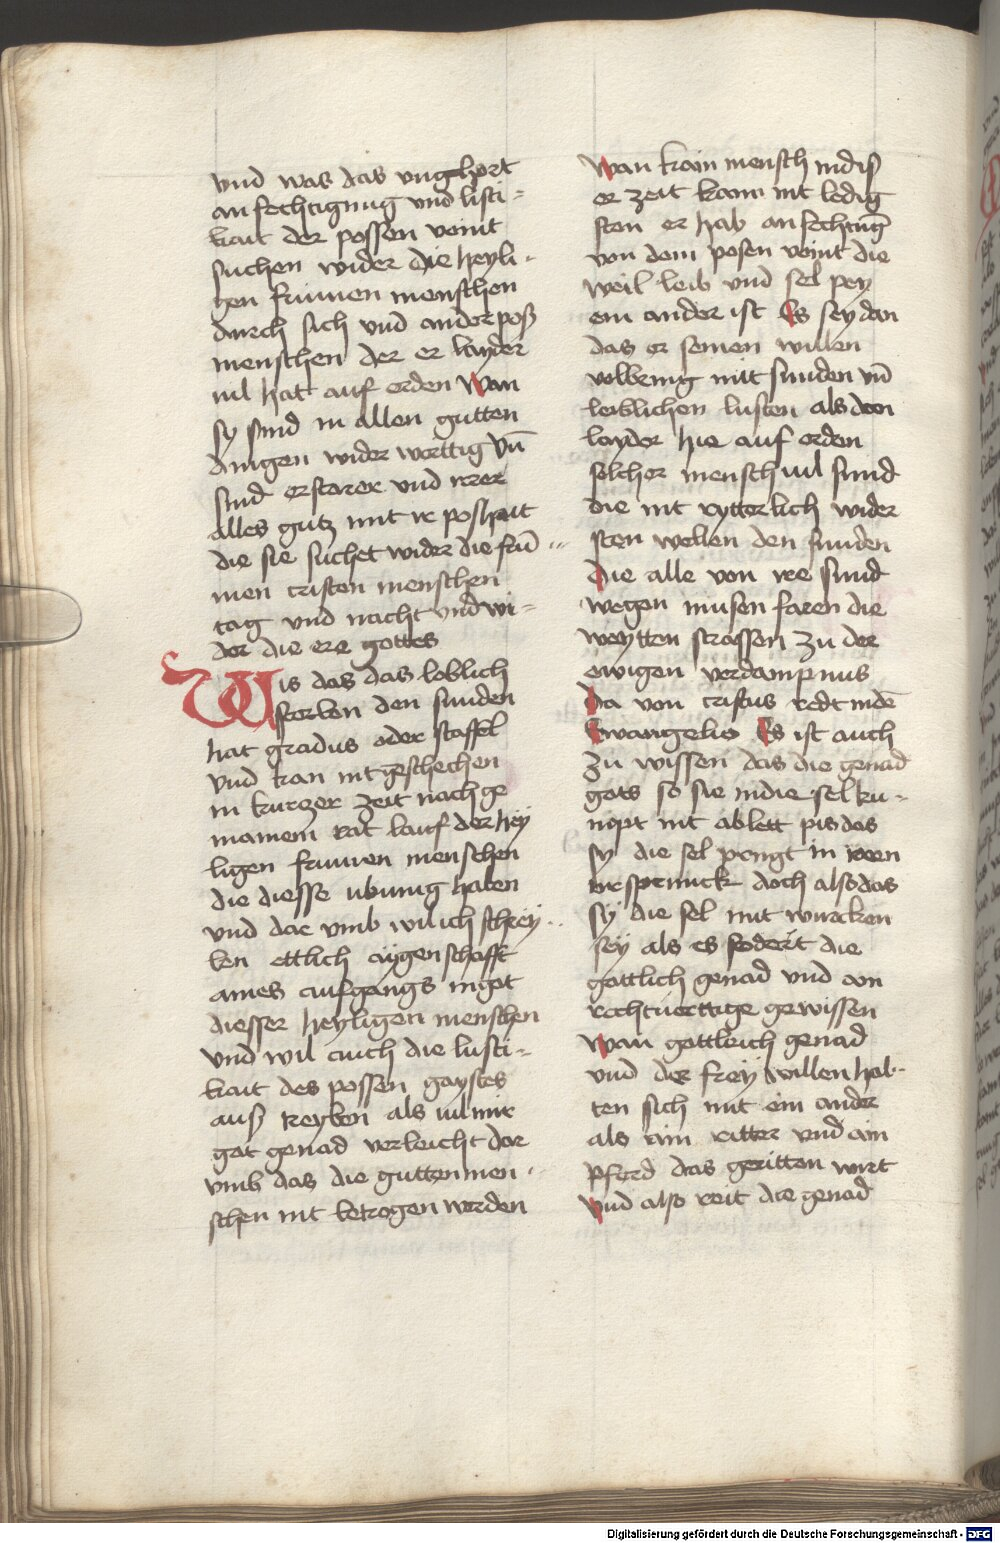 vnd was das vngehort
anfechtigung vnd listi-
kait der possen veint
suchen wider die heyli-
gen frumen menschen
durch sich vnd ander poß
menschen der er layder
uil hat auf erden Wan
sy sind in allen gutten
dingen wider wertig vn̄
sind erstorer vnd irrer
alles gutz mit ir poshait
die sie suchet wider die frū-
men cristen menschen
tag vnd nacht vnd wi-
der die ere gottes
Wis das das loblich
sterben den sunden
hat gradus oder staffel
vnd kan nit geschechen
in kurczer zeit nach ge
mainem rat lauf der hey
ligen frumen menschen
die diesse ubung haben
vnd dar vmb wil ich schrey-
ben ettlich aygenschafft
aines aufgangs in got
diesser heyligen menschen
vnd wil auch die lusti-
kait des possen gaystes
auß treyben als uil mir
got genad verleicht dar
vmb das die gutten men-
schen nit betrogen werden
Wan kain mensch in diß
er zeit kann nit ledig
sten er hab anfechtūg
von dem posen veint die
weil leib vnd sel pey
ein ander ist Es sey dan
das er seinen willen
volbring mit sunden vn̄
leiblichen lusten als den
layder hie auf erden
solcher mensch uil sind
die nit rytterlich wider
sten wellen den sunden
Die alle von ire sund
wegen musen faren die
weytten strassen zu der
ewigen verdampnus
Da von cristus redt in dē
Ewangelio Es ist auch
zu wissen das die genad
gots so sie in die sel ku-
mpt nit ablett pis das
sy die sel pringt in iren
vrsprunck doch also das
sy die sel mit wurcken
sey als es fodert die
gottlich genad vnd ein
rechtuerttige gewissen
Wan gottleich genad
vnd der frey willen hal-
ten sich mit ein ander
als ain ritter vnd ain
pferd das geritten wirt
Vnd also reit die genad
Digitalisierung gefördert durch die Deutsche Forschungsgemeinschaft - DFG